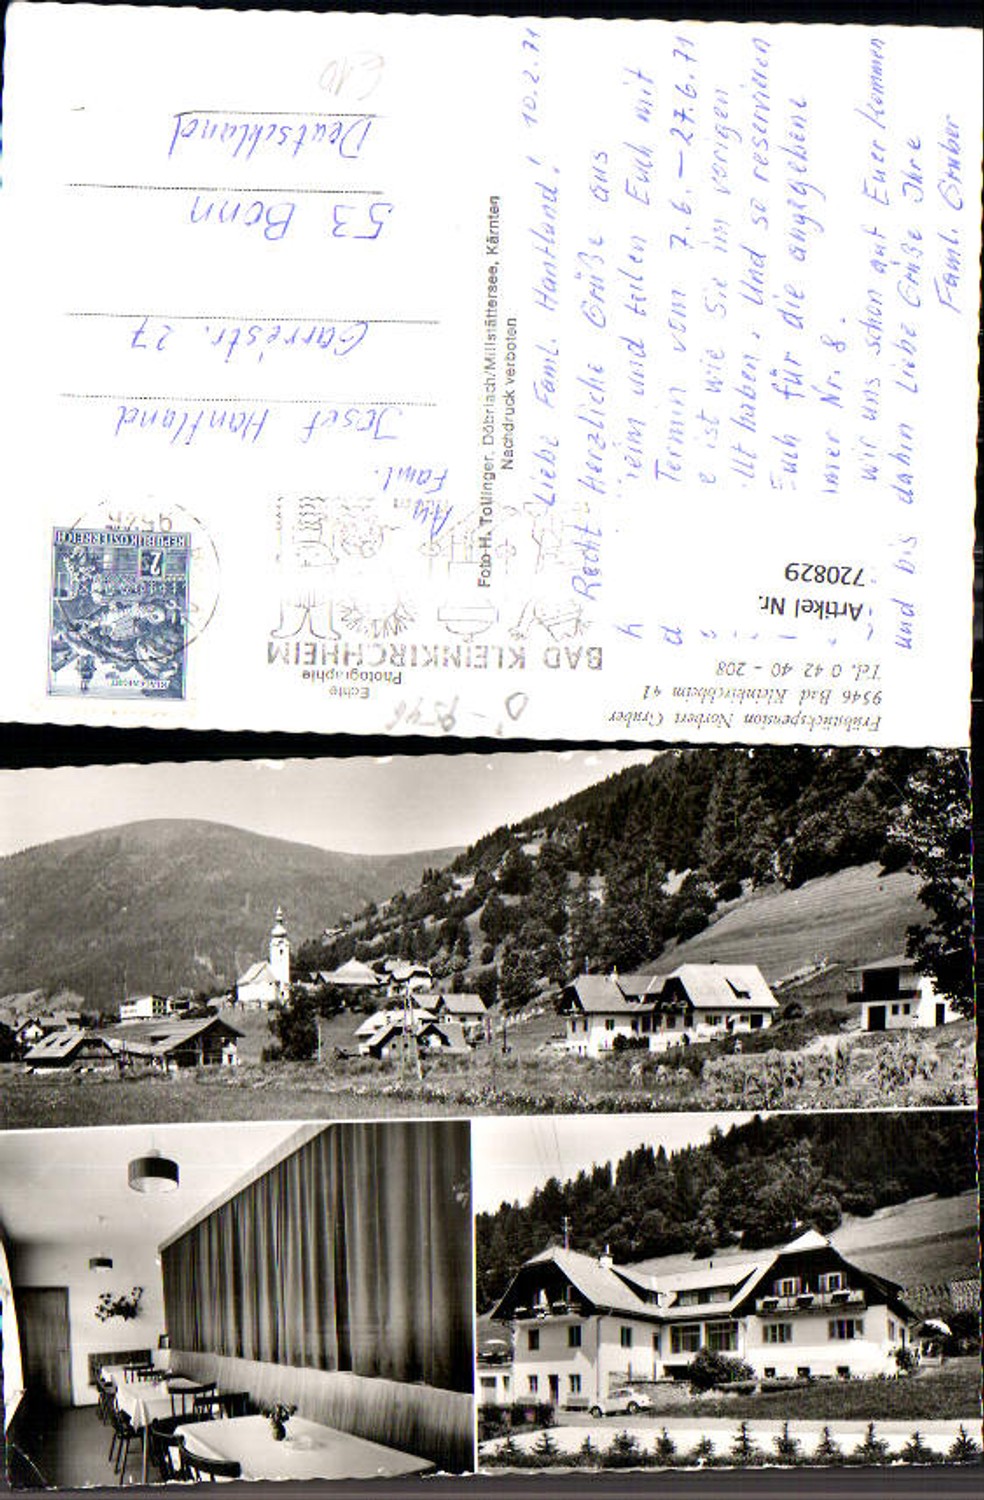 Frühstückspension Norbert Gruber
9546 Bad Kleinkirchheim 41
Tel. 0 42 40 - 208
Echte
Photographie
BAD KLEINKIRCHHEIM
Artikel Nr.
720829
REPUBLIK ÖSTERREICH
2
9546
10.2.71
Liebe Faml. Hanfland!
Recht Herzliche Grüße aus
und teilen Euch mit
Termin vom 7.6.–27.6.71
ist wie Sie im vorigen
haben. Und so reservieren
Euch für die angegebene
Nr. 8.
wir uns schon auf Euer Kommen
und bis dahin Liebe Grüße Ihre
Faml. Gruber
Foto-H. Tollinger, Döbriach/Millstättersee, Kärnten
Nachdruck verboten
Faml.
Josef Hanfland
Garréstr. 27
53 Bonn
Deutschland